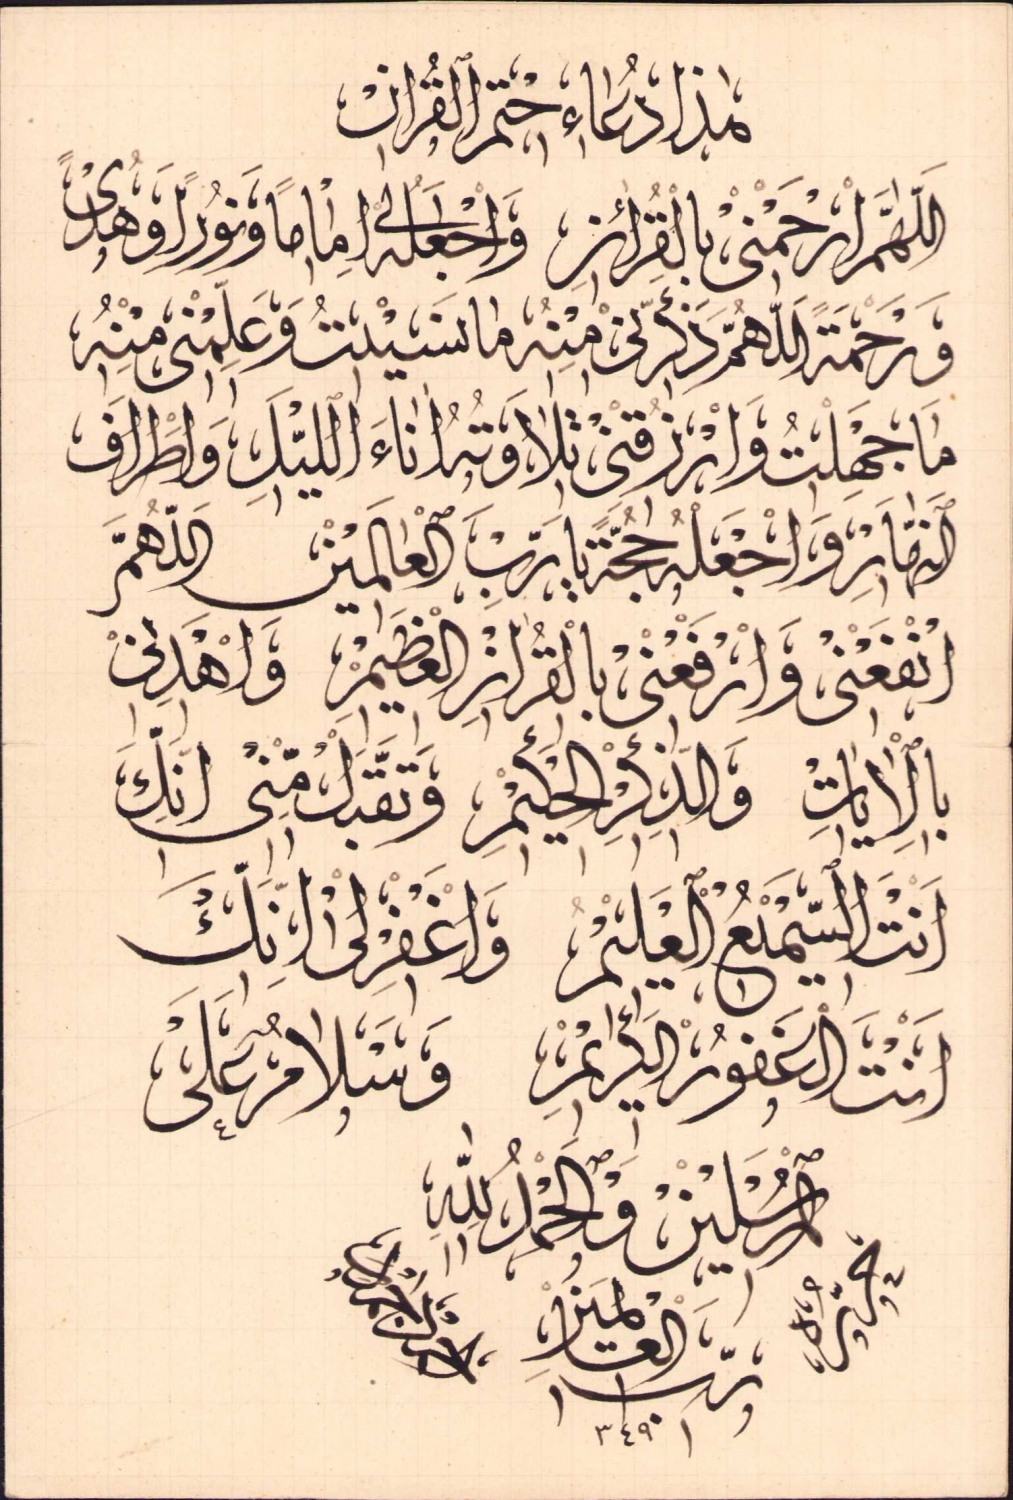 هٰذَا دُعَاءِ خَتْمِ الْقُرْاٰنْ
اَللّٰهُمَّ ارْحَمْنِىْ بِالْقُرْاٰنِ وَاجْعَلْهُ لِىْ اِمَامًا وَنُورًا وَهُدًى
وَرَحْمَةً اَللّٰهُمَّ ذَكِّرْنِىْ مِنْهُ مَا نَسِيْتُ وَعَلِّمْنِىْ مِنْهُ
مَا جَهِلْتُ وَارْزُقْنِىْ تِلَاوَتَهُ اٰنَاءَ اللَّيْلِ وَاَطْرَافَ
النَّهَارِ وَاجْعَلْهُ حُجَّةً يَا رَبَّ الْعَالَمِيْنَ اَللّٰهُمَّ
انْفَعْنِىْ وَارْفَعْنِىْ بِالْقُرْاٰنِ الْعَظِيْمِ وَاهْدِنِىْ
بِالْاٰيَاتِ وَالذِّكْرِ الْحَكِيْمِ وَتَقَبَّلْ مِنِّىْ اِنَّكَ
اَنْتَ السَّمِيْعُ الْعَلِيْمُ وَاغْفِرْلِىْ اِنَّكَ
اَنْتَ الْغَفُورُ الْكَرِيْمُ وَسَلَامٌ عَلَى
الْمُرْسَلِيْنَ وَالْحَمْدُ لِلّٰهِ
رَبِّ الْعَالَمِيْنَ